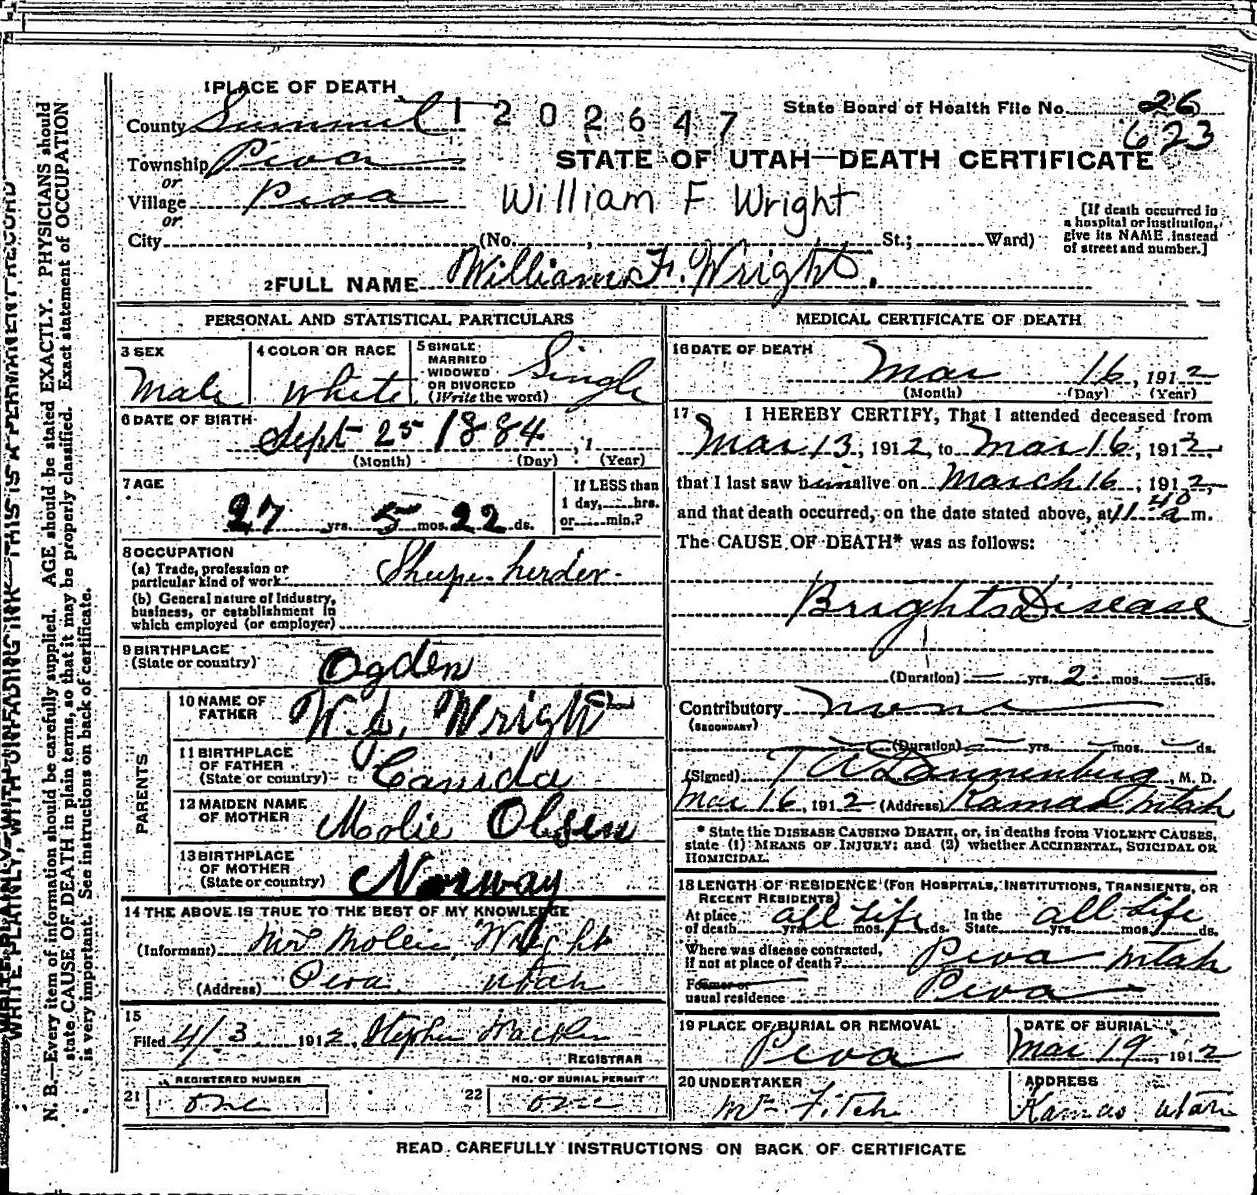 1 PLACE OF DEATH
County Summit 1202647
State Board of Health File No. 26
623
Township Peoa
or
Village Peoa
or
STATE OF UTAH—DEATH CERTIFICATE
William F Wright
City (No. , St.; Ward)
[If death occurred in
a hospital or institution,
give its NAME instead
of street and number.]
2 FULL NAME William F. Wright.
PERSONAL AND STATISTICAL PARTICULARS
3 SEX
Male
4 COLOR OR RACE
White
5 SINGLE
MARRIED
WIDOWED
OR DIVORCED
(Write the word)
Single
6 DATE OF BIRTH
Sept 25 1884, 1
(Month) (Day) (Year)
7 AGE
27 yrs. 5 mos. 22 ds.
If LESS than
1 day, hrs.
or min.?
8 OCCUPATION
(a) Trade, profession or
particular kind of work
Sheep-herder
(b) General nature of Industry,
business, or establishment in
which employed (or employer)
9 BIRTHPLACE
(State or country)
Ogden
PARENTS
10 NAME OF
FATHER
W. J. Wright
11 BIRTHPLACE
OF FATHER
(State or country)
Canida
12 MAIDEN NAME
OF MOTHER
Molie Olsen
13 BIRTHPLACE
OF MOTHER
(State or country)
Norway
14 THE ABOVE IS TRUE TO THE BEST OF MY KNOWLEDGE
(Informant) Mrs Mollie Wright
(Address) Peoa Utah
15
Filed 4/3 1912 Stephen Walker
REGISTRAR
REGISTERED NUMBER
21 one
NO. OF BURIAL PERMIT
22 one
MEDICAL CERTIFICATE OF DEATH
16 DATE OF DEATH
Mar 16, 1912
(Month) (Day) (Year)
17 I HEREBY CERTIFY, That I attended deceased from
Mar 13, 1912, to Mar 16, 1912,
that I last saw him alive on March 16, 1912,
and that death occurred, on the date stated above, at 11 40 a m.
The CAUSE OF DEATH* was as follows:
Brights Disease
(Duration) — yrs. 2 mos. — ds.
Contributory None
(SECONDARY)
(Duration) — yrs. — mos. — ds.
(Signed) T A Dannenberg, M. D.
Mar 16, 1912 (Address) Kamas Utah
* State the DISEASE CAUSING DEATH, or, in deaths from VIOLENT CAUSES,
state (1) MEANS OF INJURY; and (2) whether ACCIDENTAL, SUICIDAL OR
HOMICIDAL.
18 LENGTH OF RESIDENCE (FOR HOSPITALS, INSTITUTIONS, TRANSIENTS, OR
RECENT RESIDENTS)
At place
of death all Life yrs. mos. ds.
In the
State all Life yrs. mos. ds.
Where was disease contracted,
if not at place of death? Peoa Utah
Former or
usual residence Peoa
19 PLACE OF BURIAL OR REMOVAL
Peoa
DATE OF BURIAL
Mar 19, 1912
20 UNDERTAKER
Mr Fitch
ADDRESS
Kamas Utah
READ CAREFULLY INSTRUCTIONS ON BACK OF CERTIFICATE
WRITE PLAINLY, WITH UNFADING INK—THIS IS A PERMANENT RECORD
N. B.—Every item of information should be carefully supplied. AGE should be stated EXACTLY. PHYSICIANS should
state CAUSE OF DEATH in plain terms, so that it may be properly classified. Exact statement of OCCUPATION
is very important. See instructions on back of certificate.